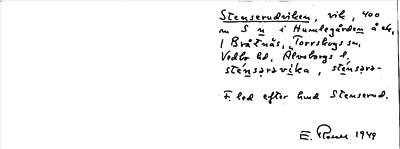 Stenserudviken, vik, 400
m S n i Humlegården å ek.
/ Bråtnäs, Torrskogs sn,
Vedbo hd, Älvsborgs l,
stensərəvika, stensərə-
F. led efter hmd Stenserud.
E. Rosell 1949